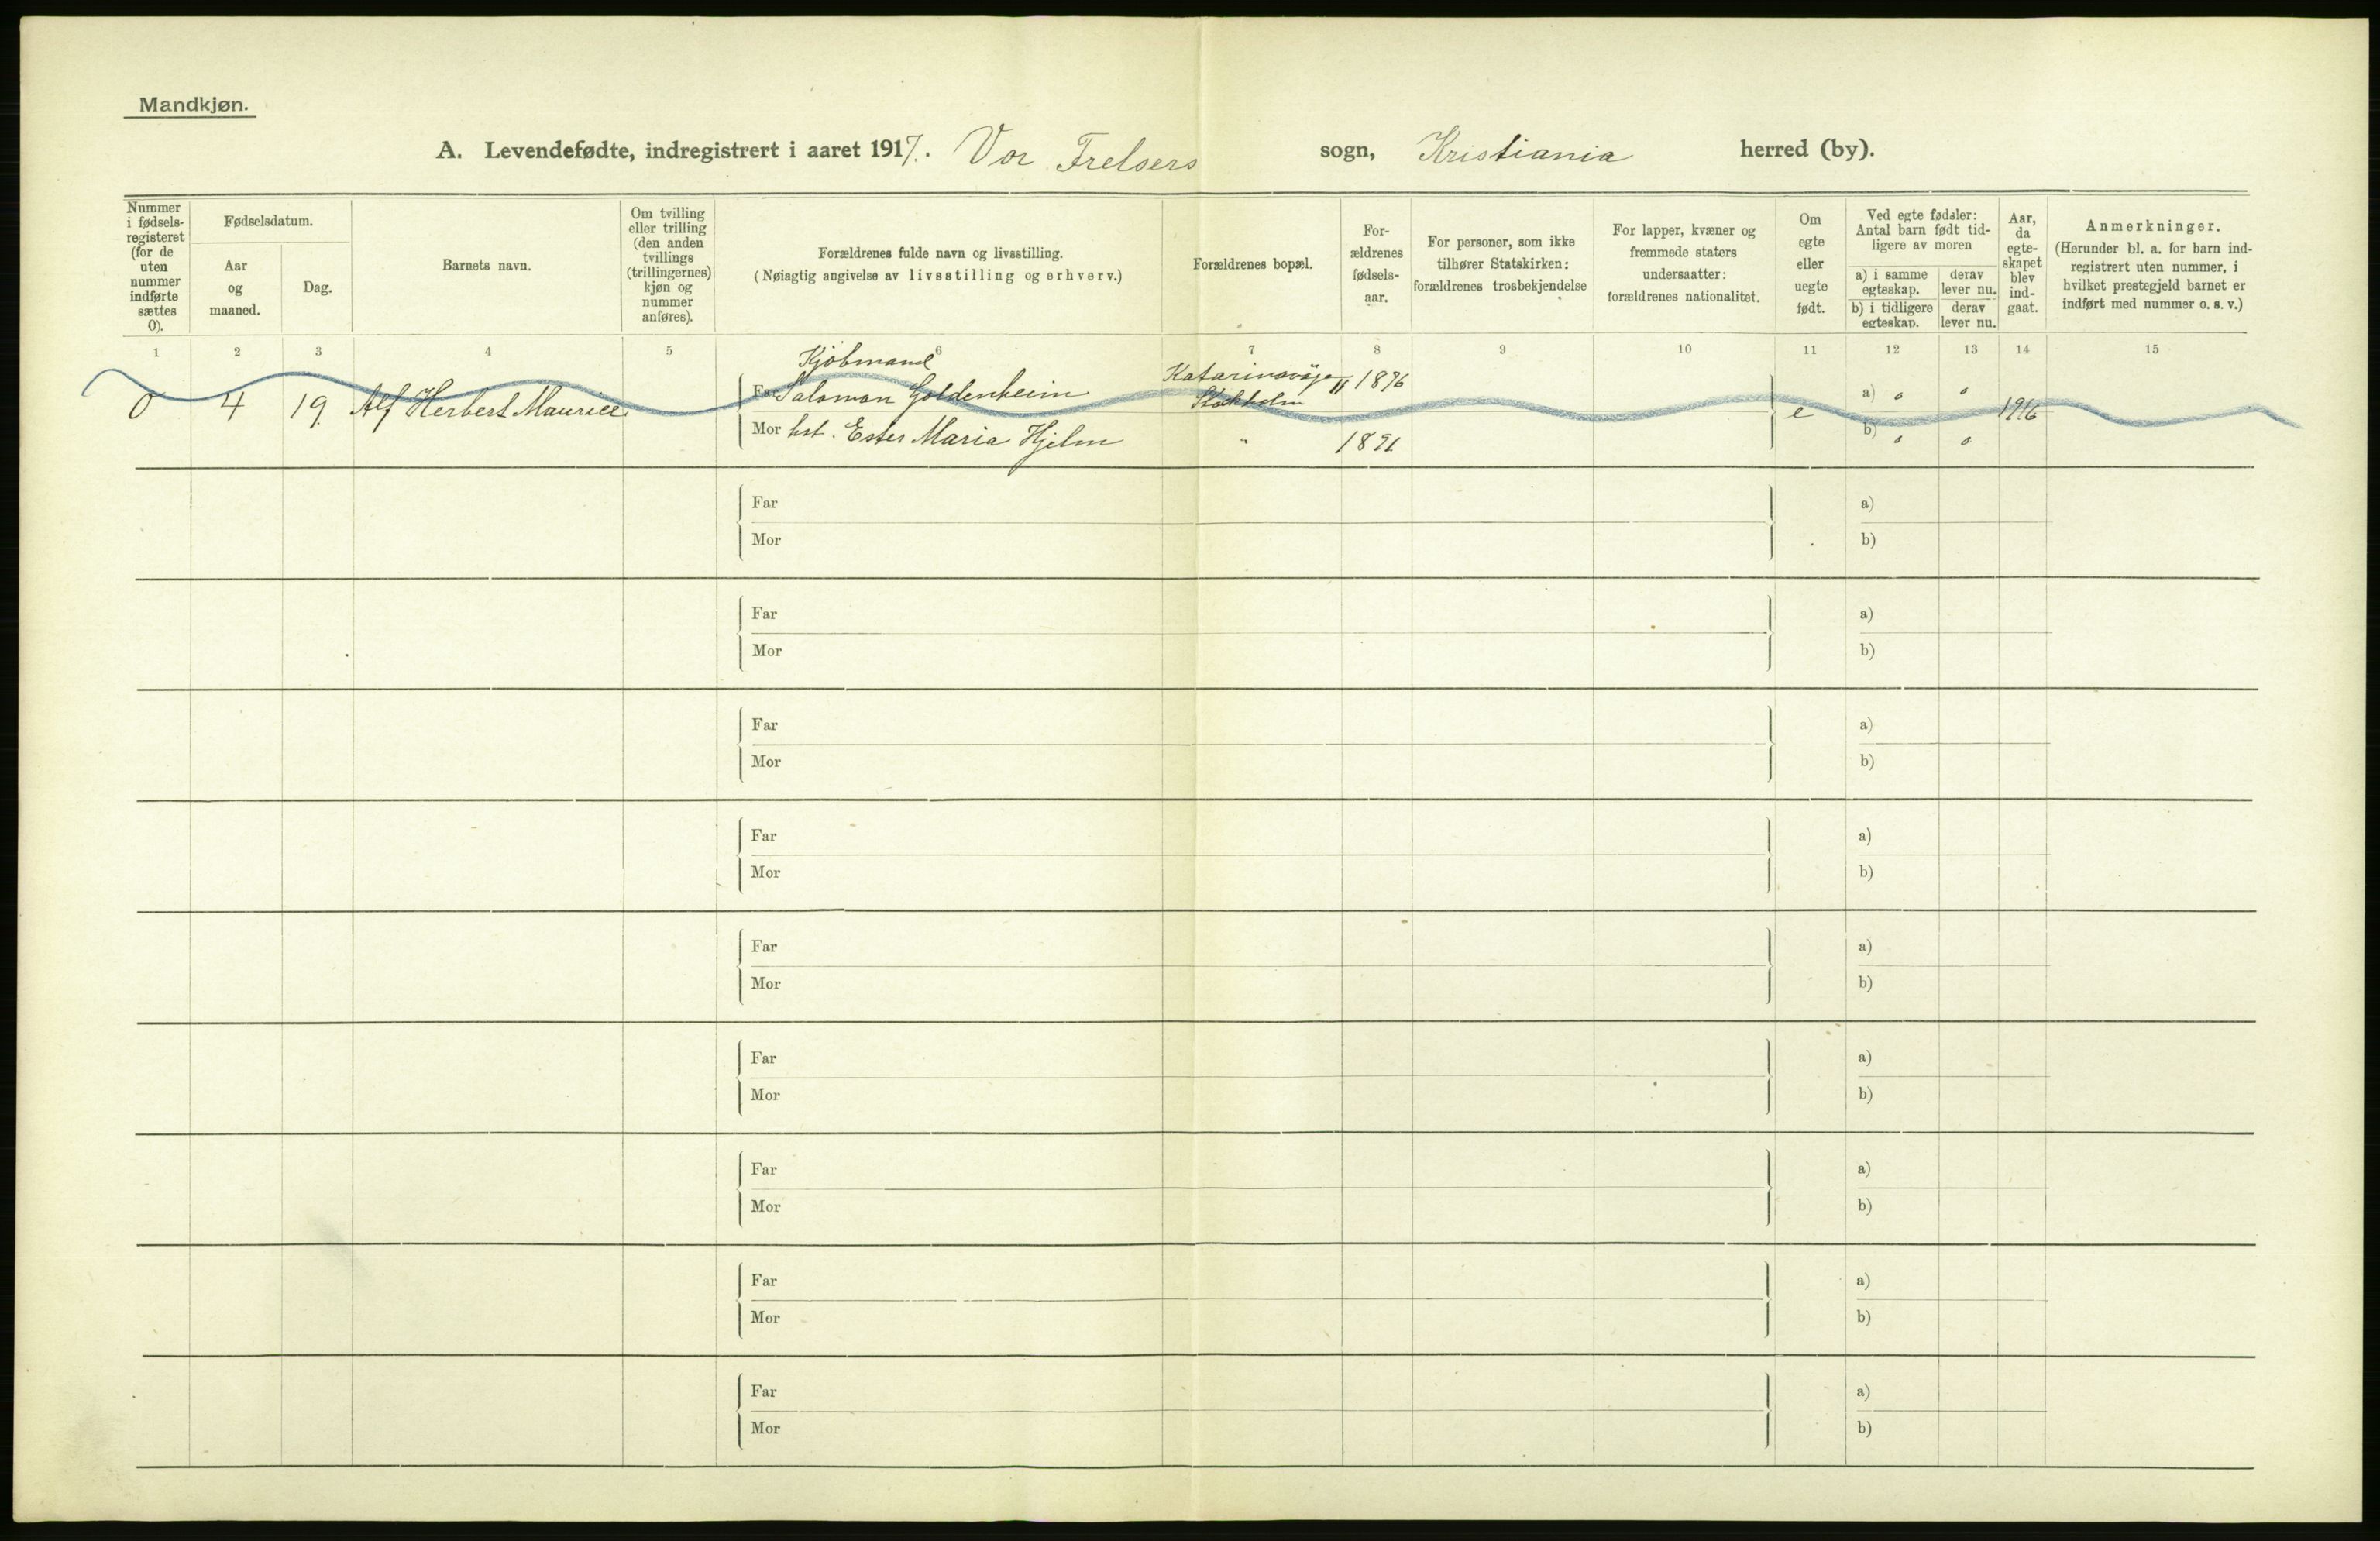 Mandkjøn.
A. Levendefødte, indregistrert i aaret 1917. Vor Frelsers sogn, Kristiania herred (by).
Nummer
i fødsels-
registeret
(for de
uten
nummer
indførte
sættes
0).
Fødselsdatum.
Aar
og
maaned.
Dag.
Barnets navn.
Om tvilling
eller trilling
(den anden
tvillings
(trillingernes)
kjøn og
nummer
anføres).
Forældrenes fulde navn og livsstilling.
(Nøiagtig angivelse av livsstilling og erhverv.)
Forældrenes bopæl.
For-
ældrenes
fødsels-
aar.
For personer, som ikke
tilhører Statskirken:
forældrenes trosbekjendelse
For lapper, kvæner og
fremmede staters
undersaatter:
forældrenes nationalitet.
Om
egte
eller
uegte
født.
Ved egte fødsler:
Antal barn født tid-
ligere av moren
a) i samme
egteskap.
derav
lever nu.
b) i tidligere
egteskap.
derav
lever nu.
Aar,
da
egte-
skapet
blev
ind-
gaat.
Anmerkninger.
(Herunder bl. a. for barn ind-
registrert uten nummer, i
hvilket prestegjeld barnet er
indført med nummer o. s. v.)
1 2 3 4 5 6 7 8 9 10 11 12 13 14 15
Kjöbmand
0 4 19. Alf Herbert Maurice Far Salomon Goldenheim 11 1896 e a) 0 0 1916
Stockholm
Mor hst. Ester Maria Hjelm " 1891 b) 0 0
Far a)
Mor b)
Far a)
Mor b)
Far a)
Mor b)
Far a)
Mor b)
Far a)
Mor b)
Far a)
Mor b)
Far a)
Mor b)
Far a)
Mor b)
Far a)
Mor b)